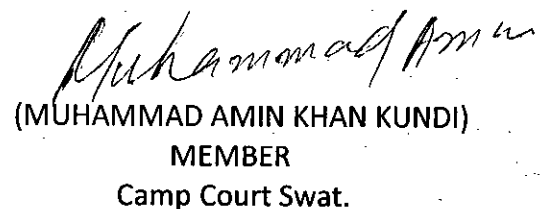 Muhammad Amin
(MUHAMMAD AMIN KHAN KUNDI)
MEMBER
Camp Court Swat.